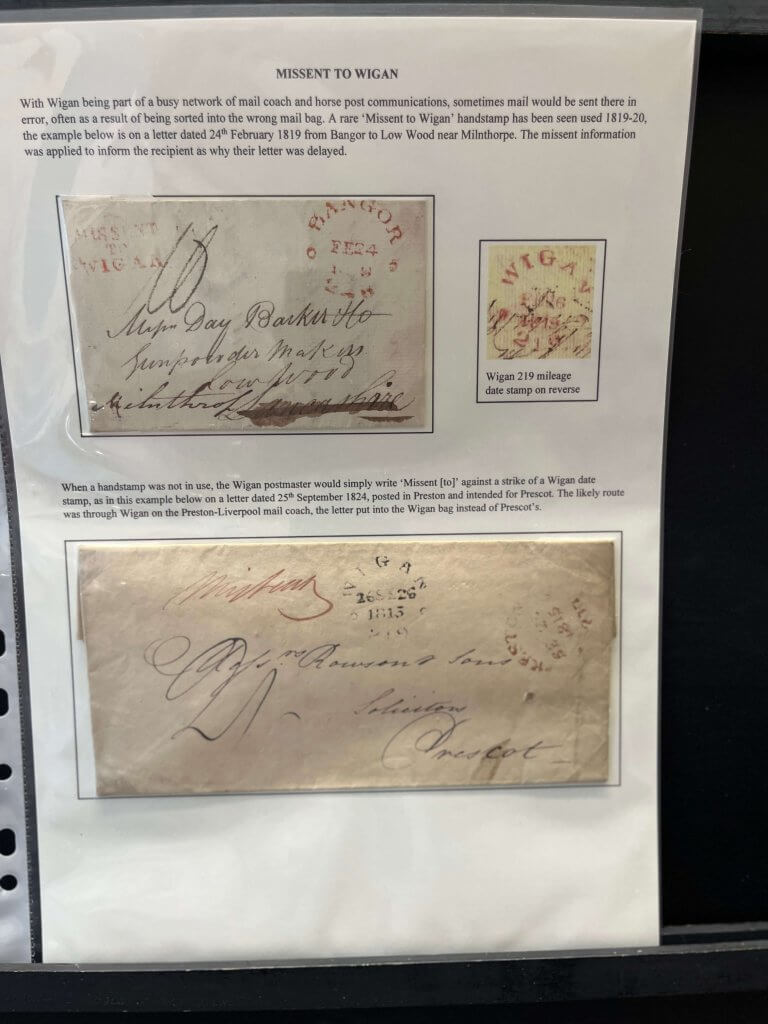 MISSENT TO WIGAN
With Wigan being part of a busy network of mail coach and horse post communications, sometimes mail would be sent there in
error, often as a result of being sorted into the wrong mail bag. A rare ‘Missent to Wigan’ handstamp has been seen used 1819-20,
the example below is on a letter dated 24th February 1819 from Bangor to Low Wood near Milnthorpe. The missent information
was applied to inform the recipient as why their letter was delayed.
MISSENT
TO
WIGAN
BANGOR
FE24
Day Barker & Ho
Gunpowder Makers
Low Wood
Milnthrop Lancashire
WIGAN
Wigan 219 mileage
date stamp on reverse
When a handstamp was not in use, the Wigan postmaster would simply write ‘Missent [to]’ against a strike of a Wigan date
stamp, as in this example below on a letter dated 25th September 1824, posted in Preston and intended for Prescot. The likely route
was through Wigan on the Preston-Liverpool mail coach, the letter put into the Wigan bag instead of Prescot’s.
Missent
WIGAN
1815
219
PRESTON
Rowson & Sons
Solicitors
Prescot